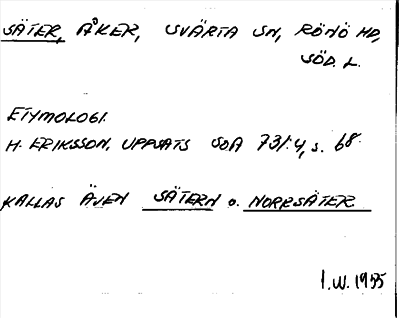 SÄTER, ÅKER, SVÄRTA SN, RÖNÖ HD,
SÖD. L.
ETYMOLOGI.
H. ERIKSSON, UPPSATS SOA 731:4, s. 68.
KALLAS ÄVEN SÄTERN o. NORRSÄTER
I.W. 1955